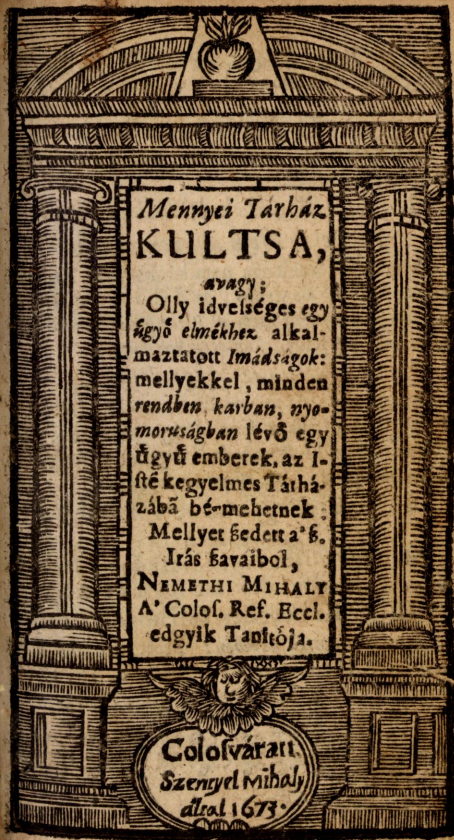 Mennyei Tárház
KULTSA,
avagy;
Olly idvelséges egy
űgyő elmékhez alkal-
maztatott Imádságok:
mellyekkel, minden
rendben, karban, nyo-
moruságban lévő egy
űgyű emberek, az I-
stẽ kegyelmes Tárhá-
zábã bé-mehetnek.
Mellyet ſzedett a' ſz.
Irás ſzavaiból,
NEMETHI MIHALY
A' Coloſ. Ref. Eccl.
edgyik Tanítója.
Coloſváratt
Szentyel Mihaly
által 1673.